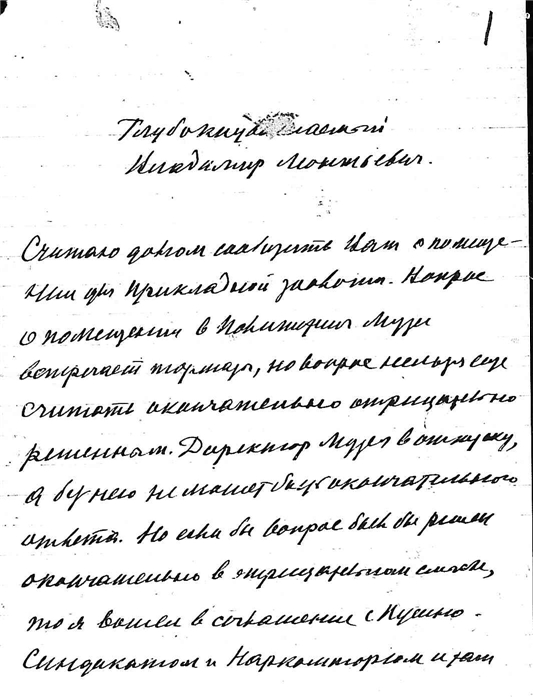 1
Глубокоуважаемый
Владимир Леонтьевич.
Считаю долгом сообщить Вам о помеще-
нии для Прикладной зоологии. Вопрос
о помещении в Политехнич. Музее
встречает тормазы, но вопрос нельзя еще
считать окончательно отрицательно
решенным. Директор Музея в отпуску,
а без него не может быть окончательного
ответа. Но если бы вопрос был бы решен
окончательно в отрицательном смысле,
то я вошел в соглашение с Пушно-
Синдикатом и Наркомторгом и там